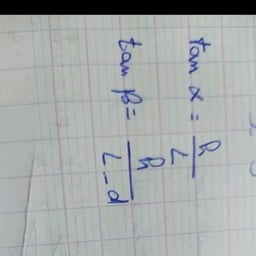 tan α = h/L
tan β = h/L-d